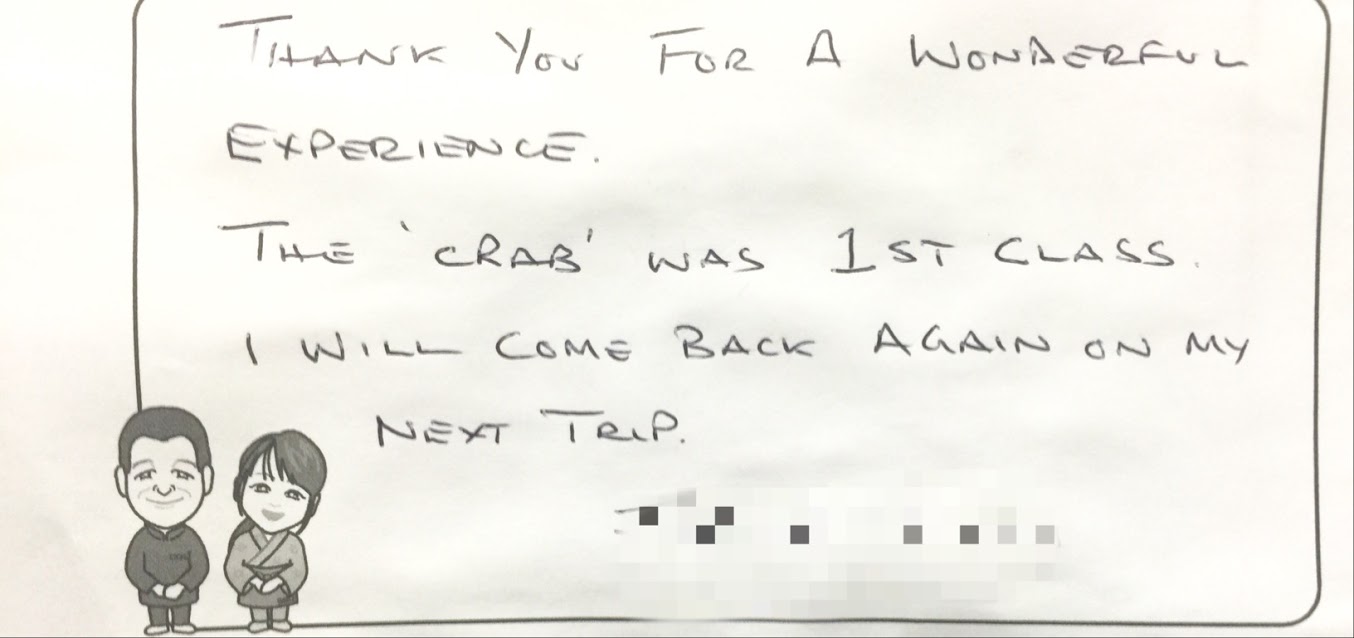 THANK YOU FOR A WONDERFUL
EXPERIENCE.
THE 'CRAB' WAS 1ST CLASS.
I WILL COME BACK AGAIN ON MY
NEXT TRIP.